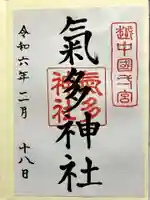 越中國一宮
氣多神社
氣多
神社
令和六年二月
十八日